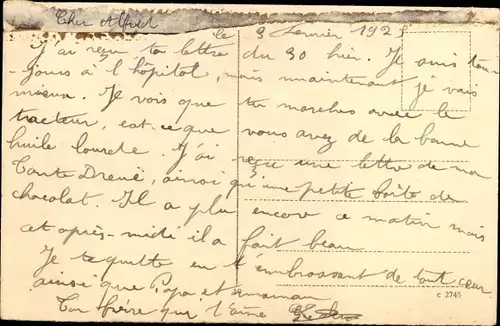 Cher Alfred
le 3 Février 192
J'ai reçu ta lettre du 30 hier. Je suis tou-
-jours à l'hôpital, mais maintenant je vais
mieux. Je vois que tu marches avec le
tracteur, est-ce que vous avez de la bonne
huile lourde. J'ai reçu une lettre de ma
Tante ainsi qu'une petite boîte de
chocolat. Il a plu encore ce matin mais
cet après-midi il a fait beau
Je te quitte en t'embrassant de tout cœur
ainsi que Papa et maman
Ton frère qui t'aime
c 2745